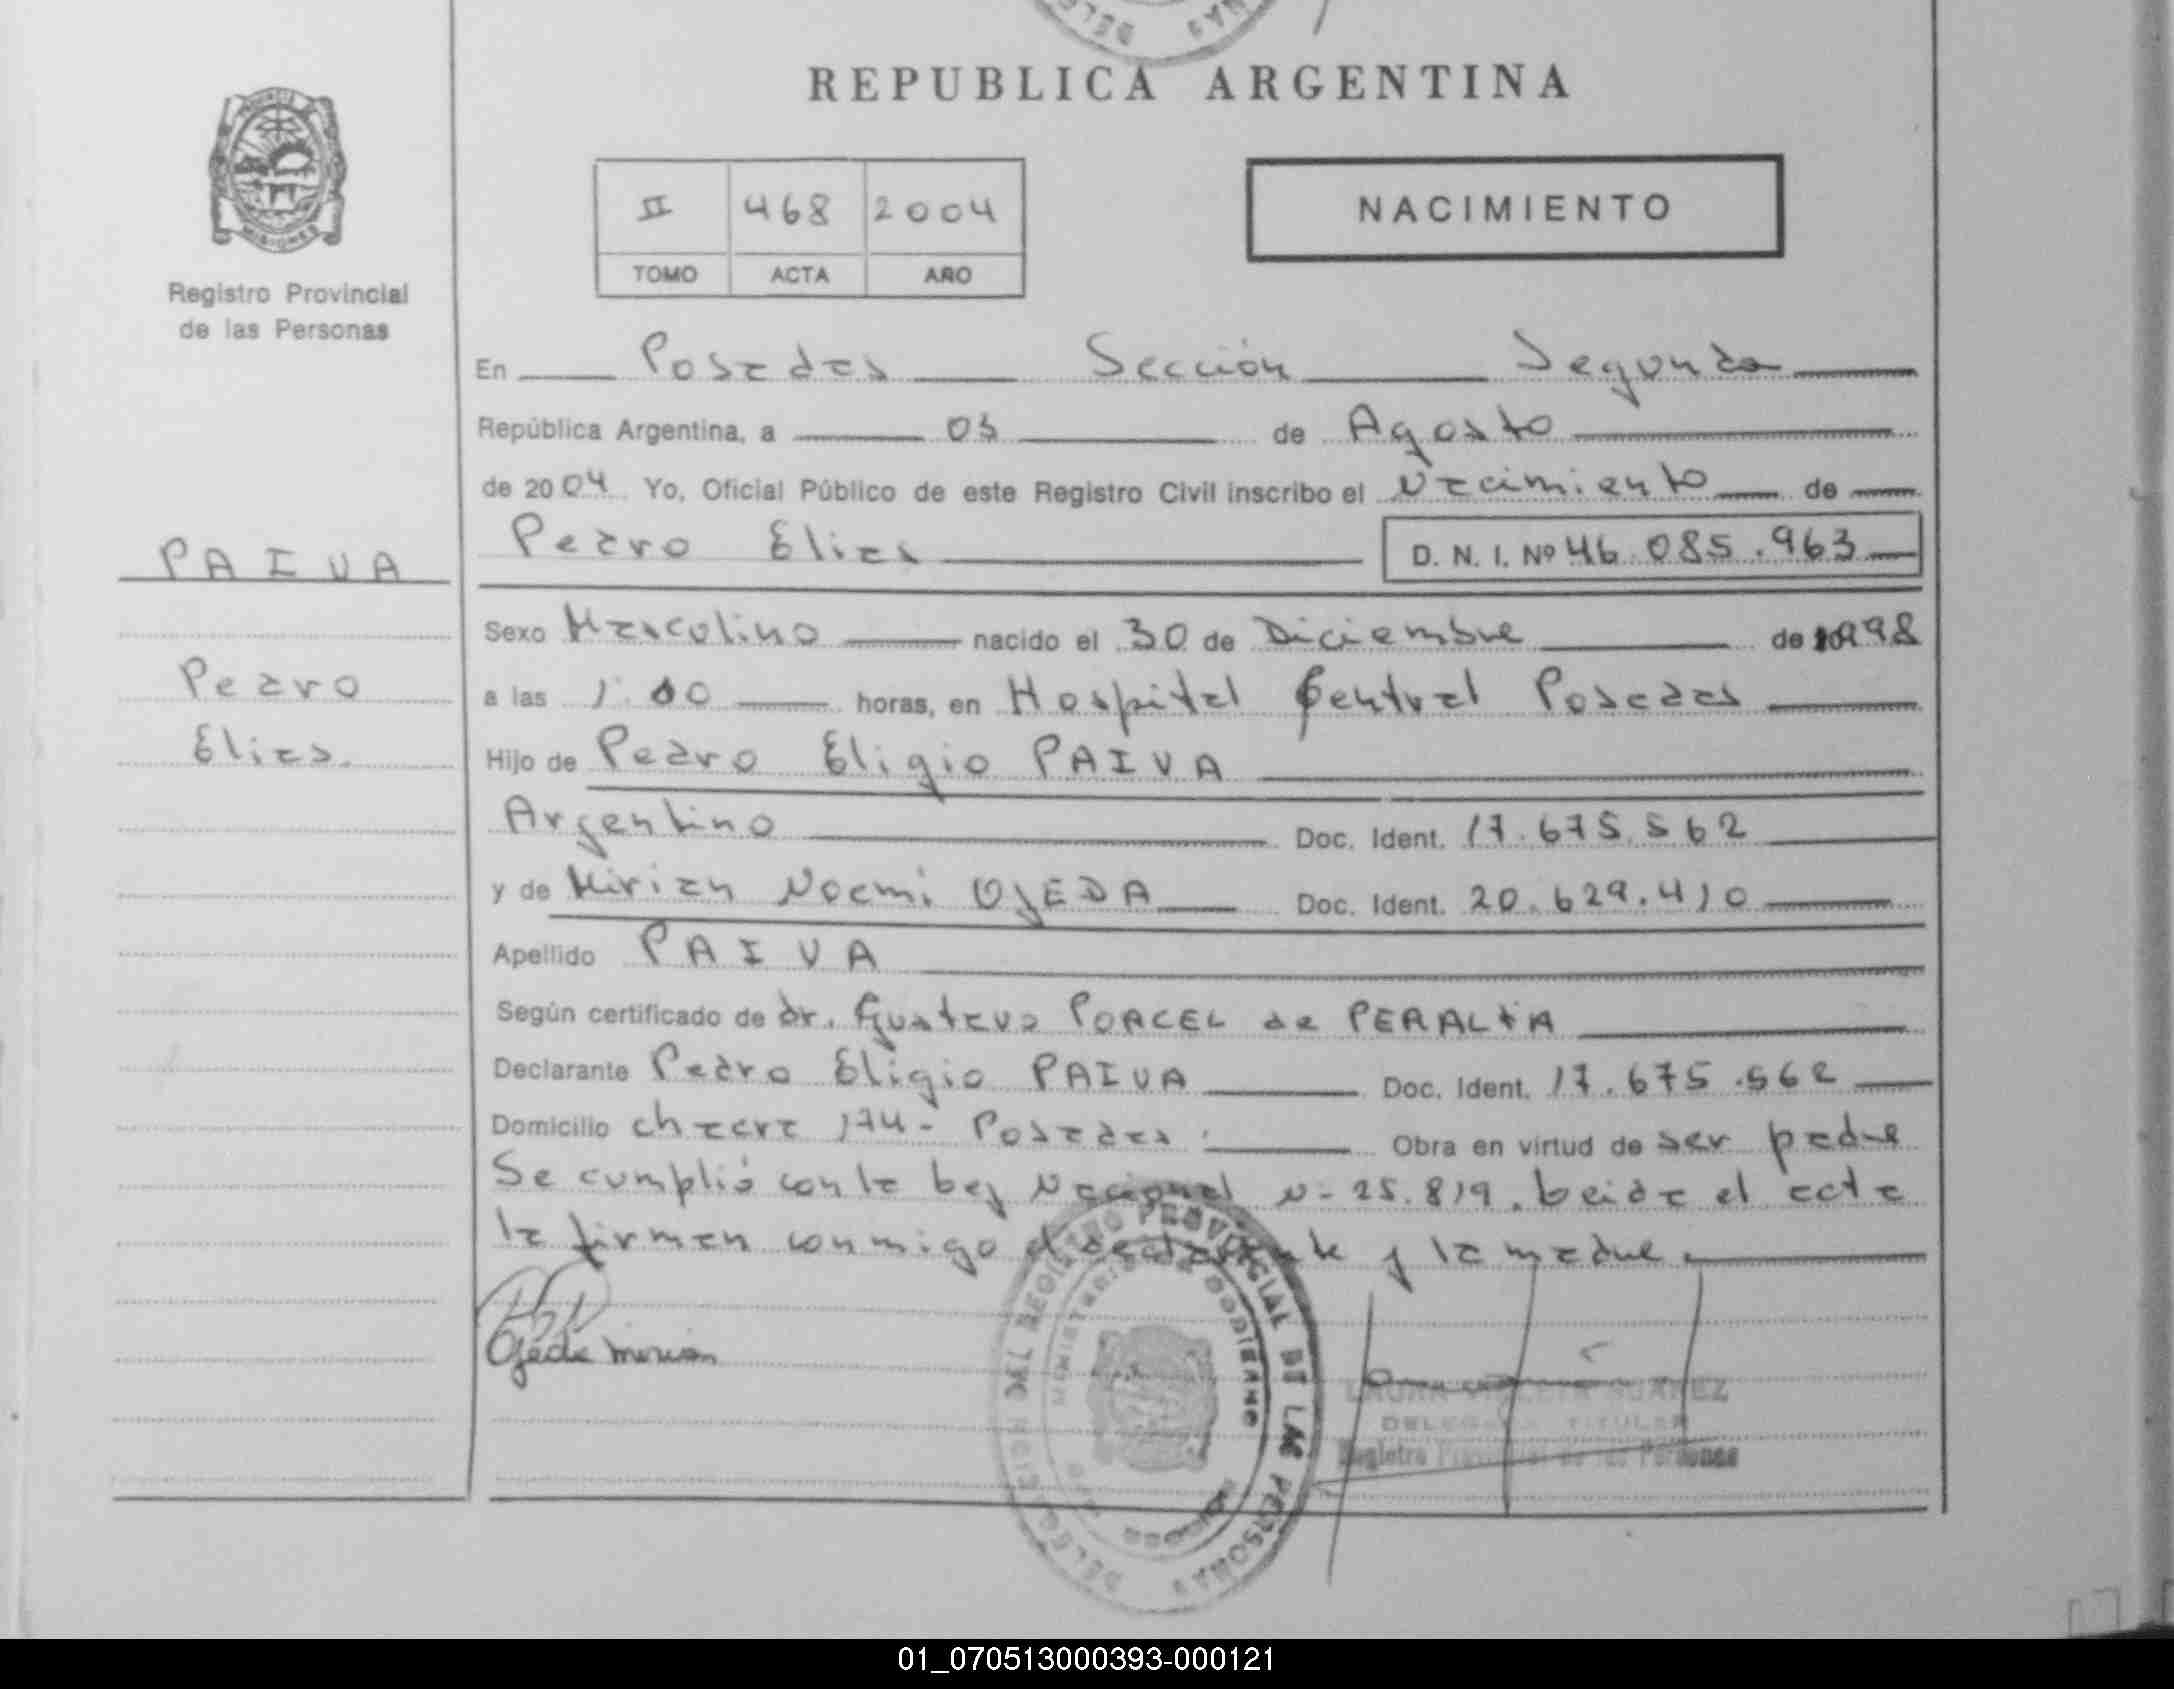 REPUBLICA ARGENTINA
II 468 2004
TOMO ACTA AÑO
NACIMIENTO
MISIONES
Registro Provincial
de las Personas
En Posadas Sección Segunda
República Argentina, a 03 de Agosto
de 2004 Yo, Oficial Público de este Registro Civil inscribo el Nacimiento de
Pedro Elias D. N. I. Nº 46.085.963
PAIVA
Pedro
Elias.
Sexo Masculino nacido el 30 de Diciembre de 1998
a las 1:00 horas, en Hospital Central Posadas
Hijo de Pedro Eligio PAIVA
Argentino Doc. Ident. 17.675.562
y de Mirian Noemi OJEDA Doc. Ident. 20.629.410
Apellido PAIVA
Según certificado de dr. Gustavo PORCEL de PERALTA
Declarante Pedro Eligio PAIVA Doc. Ident. 17.675.562
Domicilio chacra 174- Posadas Obra en virtud de ser padre
Se cumplió con la Ley Nacional N- 25.819. Leida el acta
la firman conmigo el declarante y la madre.
Ojeda Mirian
REGISTRO PROVINCIAL DE LAS PERSONAS
MINISTERIO DE GOBIERNO
LAURA SUAREZ
DELEGADA TITULAR
Registro Provincial de las Personas
01_070513000393-000121